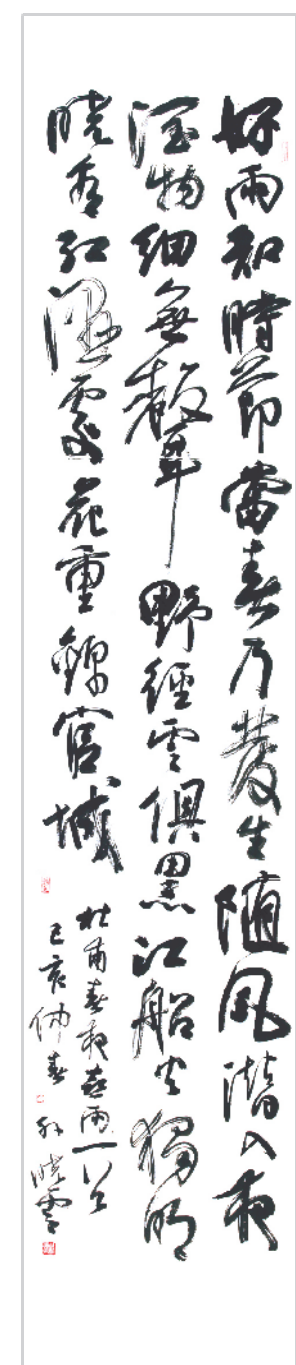 好雨知時節當春乃發生随風潛入夜
潤物細無聲野徑雲俱黑江船火獨明
曉看紅濕處花重錦官城
杜甫春夜喜雨一首
己亥仲春曉雲